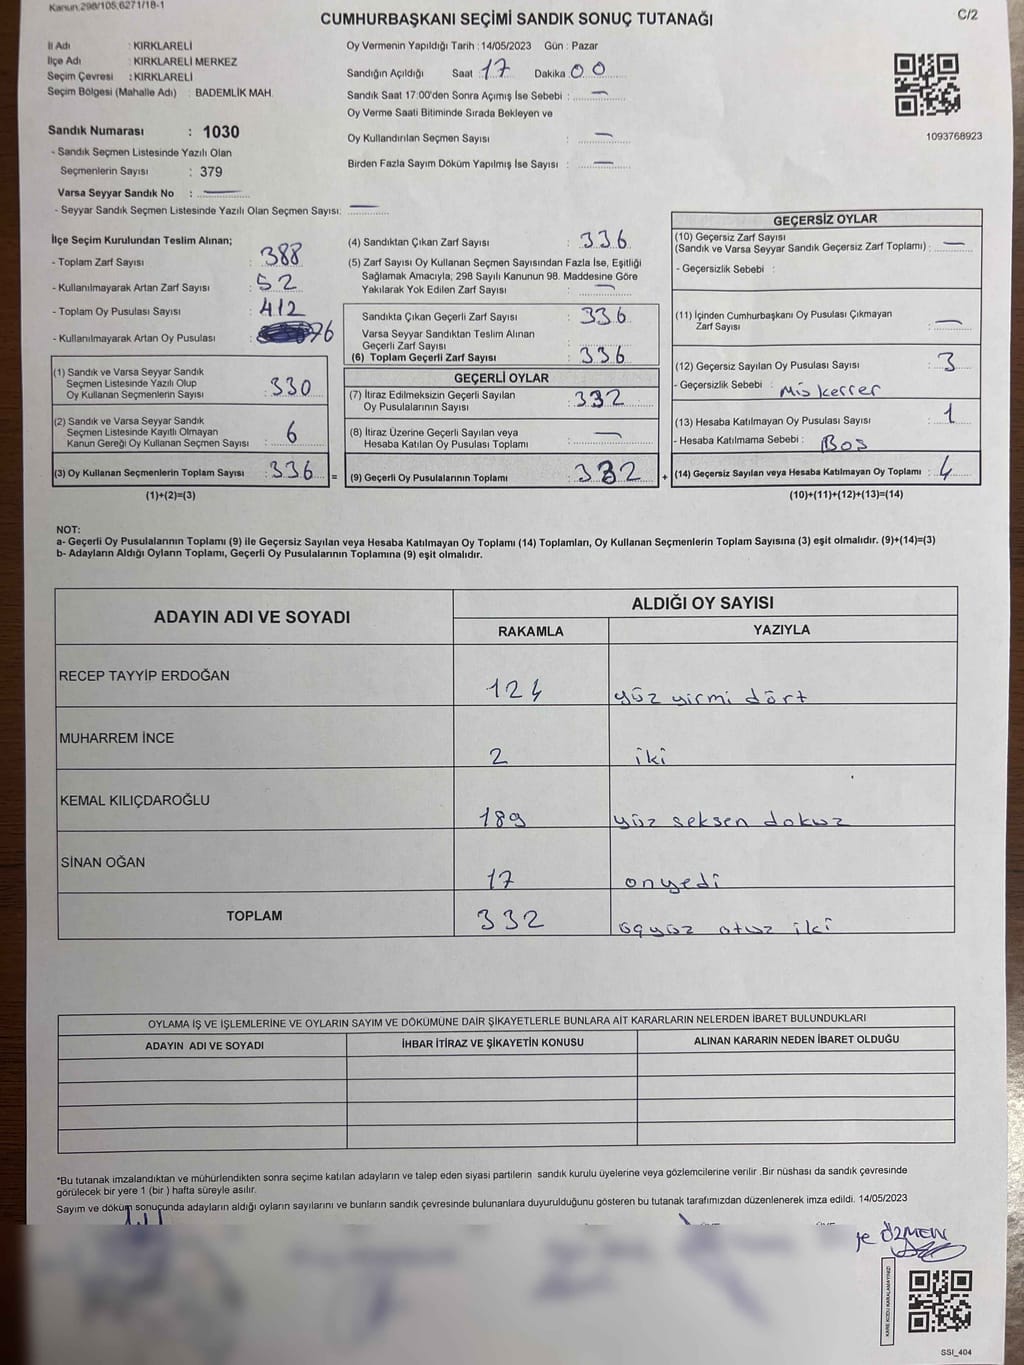 Kanun,298/105,6271/18-1
CUMHURBAŞKANI SEÇİMİ SANDIK SONUÇ TUTANAĞI
C/2
İl Adı : KIRKLARELİ
İlçe Adı : KIRKLARELİ MERKEZ
Seçim Çevresi : KIRKLARELİ
Seçim Bölgesi (Mahalle Adı) : BADEMLİK MAH.
Oy Vermenin Yapıldığı Tarih : 14/05/2023 Gün : Pazar
Sandığın Açıldığı Saat : 17 Dakika 00
Sandık Saat 17:00'den Sonra Açımış İse Sebebi : —
Oy Verme Saati Bitiminde Sırada Bekleyen ve
Oy Kullandırılan Seçmen Sayısı : —
Birden Fazla Sayım Döküm Yapılmış İse Sayısı : —
1093768923
Sandık Numarası : 1030
- Sandık Seçmen Listesinde Yazılı Olan
Seçmenlerin Sayısı : 379
Varsa Seyyar Sandık No : —
- Seyyar Sandık Seçmen Listesinde Yazılı Olan Seçmen Sayısı: —
İlçe Seçim Kurulundan Teslim Alınan;
- Toplam Zarf Sayısı : 388
- Kullanılmayarak Artan Zarf Sayısı : 52
- Toplam Oy Pusulası Sayısı : 412
- Kullanılmayarak Artan Oy Pusulası : 76
(1) Sandık ve Varsa Seyyar Sandık
Seçmen Listesinde Yazılı Olup
Oy Kullanan Seçmenlerin Sayısı : 330
(2) Sandık ve Varsa Seyyar Sandık
Seçmen Listesinde Kayıtlı Olmayan
Kanun Gereği Oy Kullanan Seçmen Sayısı : 6
(3) Oy Kullanan Seçmenlerin Toplam Sayısı : 336 =
(1)+(2)=(3)
(4) Sandıktan Çıkan Zarf Sayısı : 336
(5) Zarf Sayısı Oy Kullanan Seçmen Sayısından Fazla İse, Eşitliği
Sağlamak Amacıyla; 298 Sayılı Kanunun 98. Maddesine Göre
Yakılarak Yok Edilen Zarf Sayısı : —
Sandıkta Çıkan Geçerli Zarf Sayısı : 336
Varsa Seyyar Sandıktan Teslim Alınan
Geçerli Zarf Sayısı :
(6) Toplam Geçerli Zarf Sayısı : 336
GEÇERLİ OYLAR
(7) İtiraz Edilmeksizin Geçerli Sayılan
Oy Pusulalarının Sayısı : 332
(8) İtiraz Üzerine Geçerli Sayılan veya
Hesaba Katılan Oy Pusulası Toplamı : —
(9) Geçerli Oy Pusulalarının Toplamı : 332 +
GEÇERSİZ OYLAR
(10) Geçersiz Zarf Sayısı
(Sandık ve Varsa Seyyar Sandık Geçersiz Zarf Toplamı) : —
- Geçersizlik Sebebi :
(11) İçinden Cumhurbaşkanı Oy Pusulası Çıkmayan
Zarf Sayısı : —
(12) Geçersiz Sayılan Oy Pusulası Sayısı : 3
- Geçersizlik Sebebi :
(13) Hesaba Katılmayan Oy Pusulası Sayısı : 1
- Hesaba Katılmama Sebebi : Boş
(14) Geçersiz Sayılan veya Hesaba Katılmayan Oy Toplamı : 4
(10)+(11)+(12)+(13)=(14)
NOT:
a- Geçerli Oy Pusulalarının Toplamı (9) ile Geçersiz Sayılan veya Hesaba Katılmayan Oy Toplamı (14) Toplamları, Oy Kullanan Seçmenlerin Toplam Sayısına (3) eşit olmalıdır. (9)+(14)=(3)
b- Adayların Aldığı Oyların Toplamı, Geçerli Oy Pusulalarının Toplamına (9) eşit olmalıdır.
ADAYIN ADI VE SOYADI
ALDIĞI OY SAYISI
RAKAMLA YAZIYLA
RECEP TAYYİP ERDOĞAN 124 yüz yirmi dört
MUHARREM İNCE 2 iki
KEMAL KILIÇDAROĞLU 189 yüz seksen dokuz
SİNAN OĞAN 17 onyedi
TOPLAM 332 üçyüz otuz iki
OYLAMA İŞ VE İŞLEMLERİNE VE OYLARIN SAYIM VE DÖKÜMÜNE DAİR ŞİKAYETLERLE BUNLARA AİT KARARLARIN NELERDEN İBARET BULUNDUKLARI
ADAYIN ADI VE SOYADI İHBAR İTİRAZ VE ŞİKAYETİN KONUSU ALINAN KARARIN NEDEN İBARET OLDUĞU
*Bu tutanak imzalandıktan ve mühürlendikten sonra seçime katılan adayların ve talep eden siyasi partilerin sandık kurulu üyelerine veya gözlemcilerine verilir .Bir nüshası da sandık çevresinde
görülecek bir yere 1 (bir ) hafta süreyle asılır.
Sayım ve döküm sonucunda adayların aldığı oyların sayılarını ve bunların sandık çevresinde bulunanlara duyurulduğunu gösteren bu tutanak tarafımızdan düzenlenerek imza edildi. 14/05/2023
ÖZMEN
KARE KODU KARALAMAYINIZ!
SSI_404